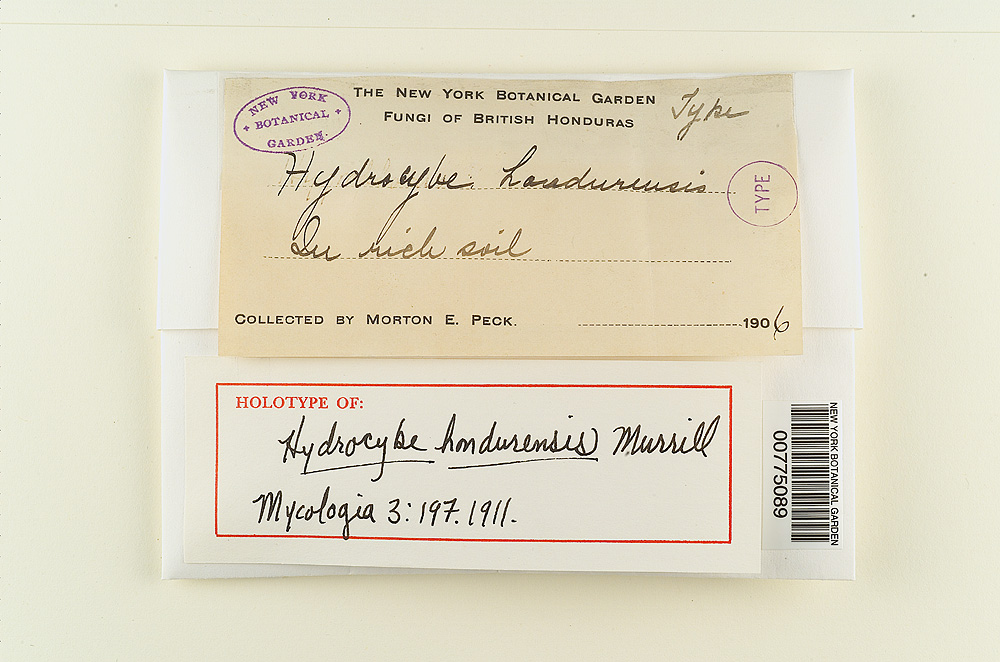 NEW YORK
BOTANICAL
GARDEN.
THE NEW YORK BOTANICAL GARDEN
FUNGI OF BRITISH HONDURAS
Type
Hydrocybe hondurensis
TYPE
In rich soil
COLLECTED BY MORTON E. PECK.
1906
HOLOTYPE OF:
Hydrocybe hondurensis Murrill
Mycologia 3:197.1911.
NEW YORK BOTANICAL GARDEN
00775089